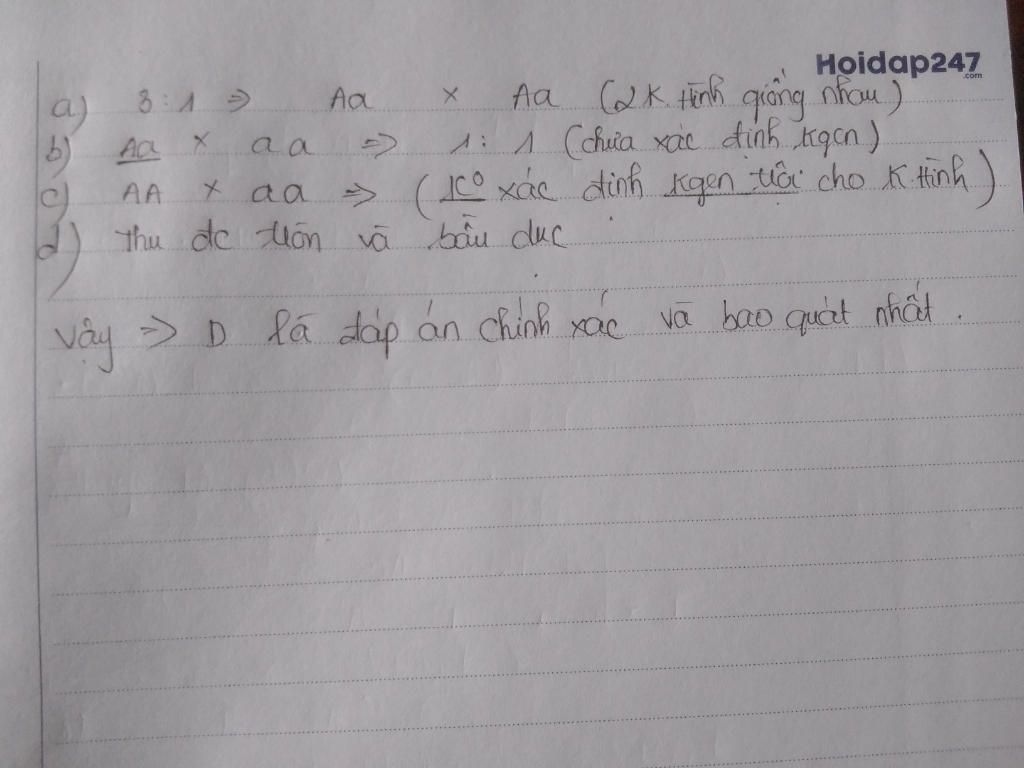 Hoidap247
.com
a) 3:1 => Aa x Aa (2 K hình giống nhau)
b) Aa x aa => 1:1 (chưa xác định kgen)
c) AA x aa => (K° xác định kgen trội cho K hình)
d) thu đc tròn và bầu dục
Vậy => D là đáp án chính xác và bao quát nhất.